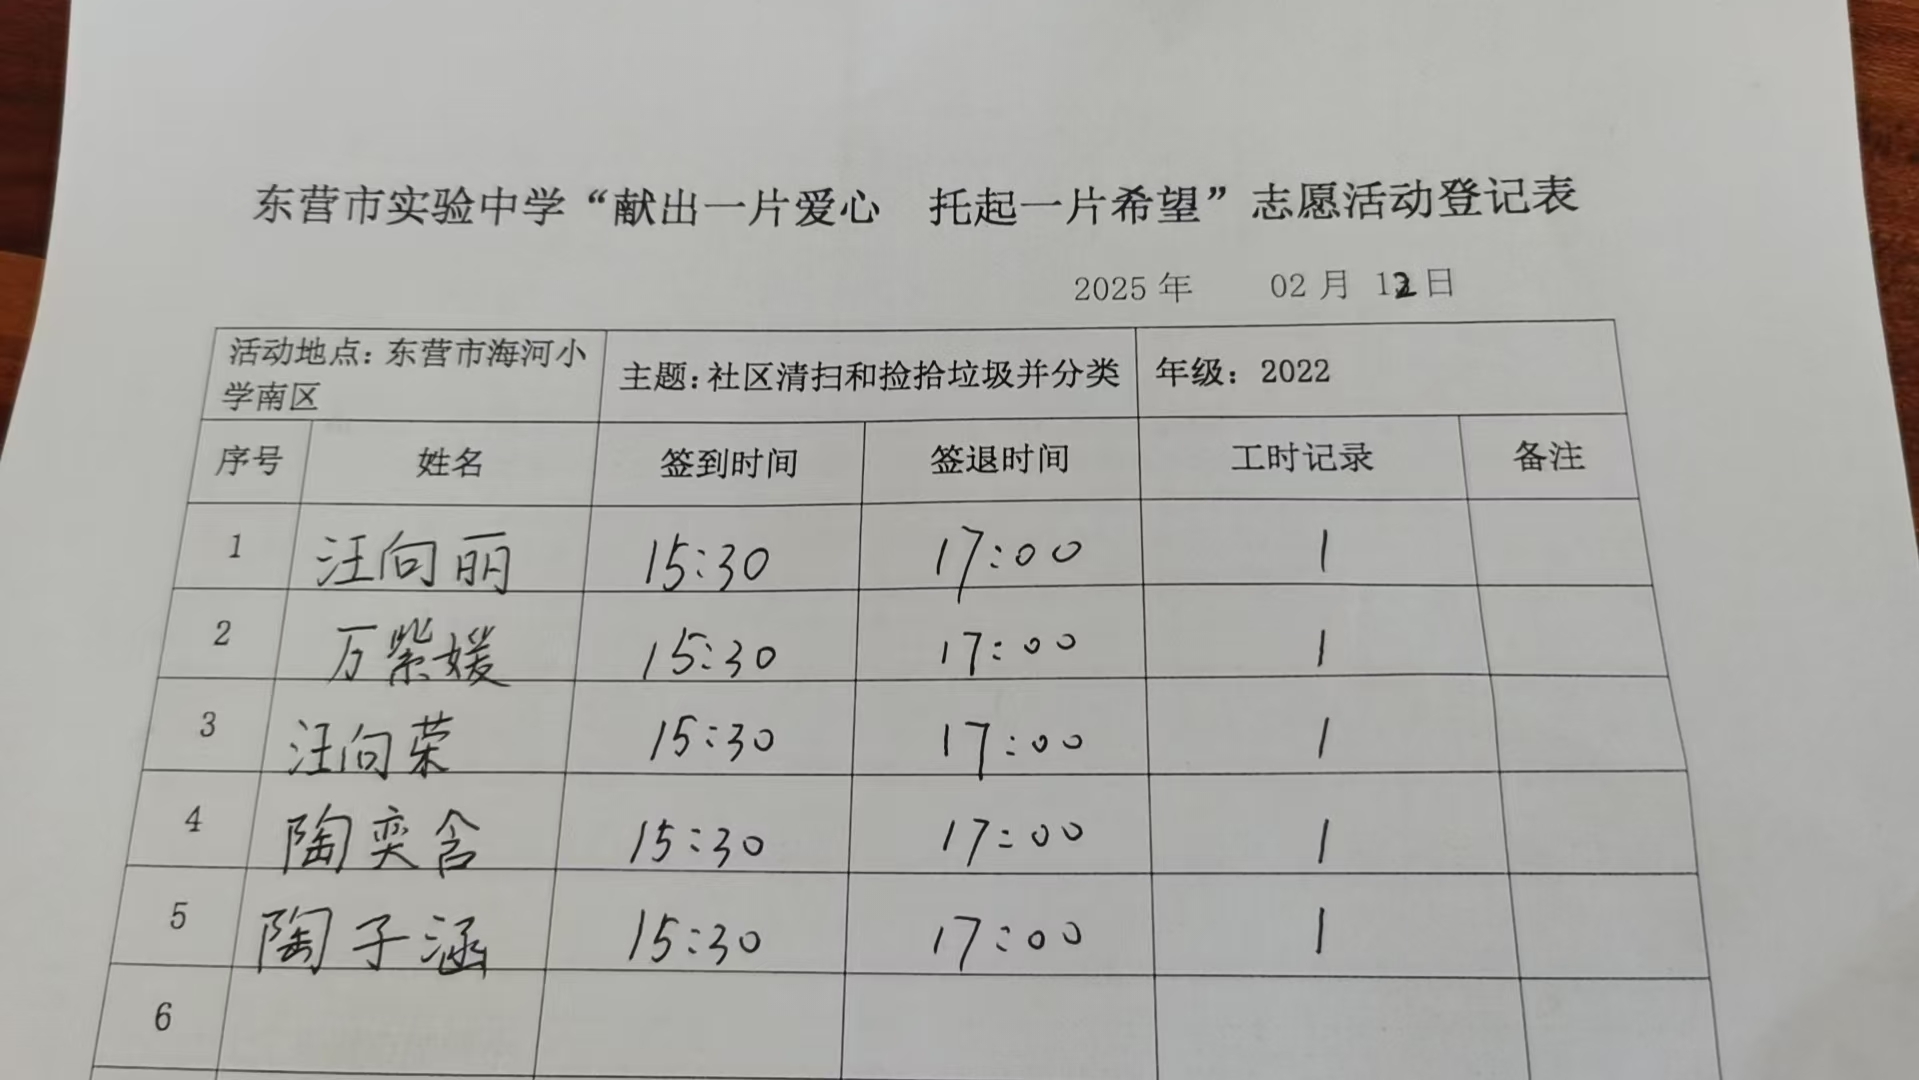 东营市实验中学“献出一片爱心 托起一片希望”志愿活动登记表
2025年 02月 12日
活动地点：东营市海河小学南区 主题：社区清扫和捡拾垃圾并分类 年级：2022
序号 姓名 签到时间 签退时间 工时记录 备注
1 汪向丽 15:30 17:00 1
2 万紫媛 15:30 17:00 1
3 汪向荣 15:30 17:00 1
4 陶奕含 15:30 17:00 1
5 陶子涵 15:30 17:00 1
6